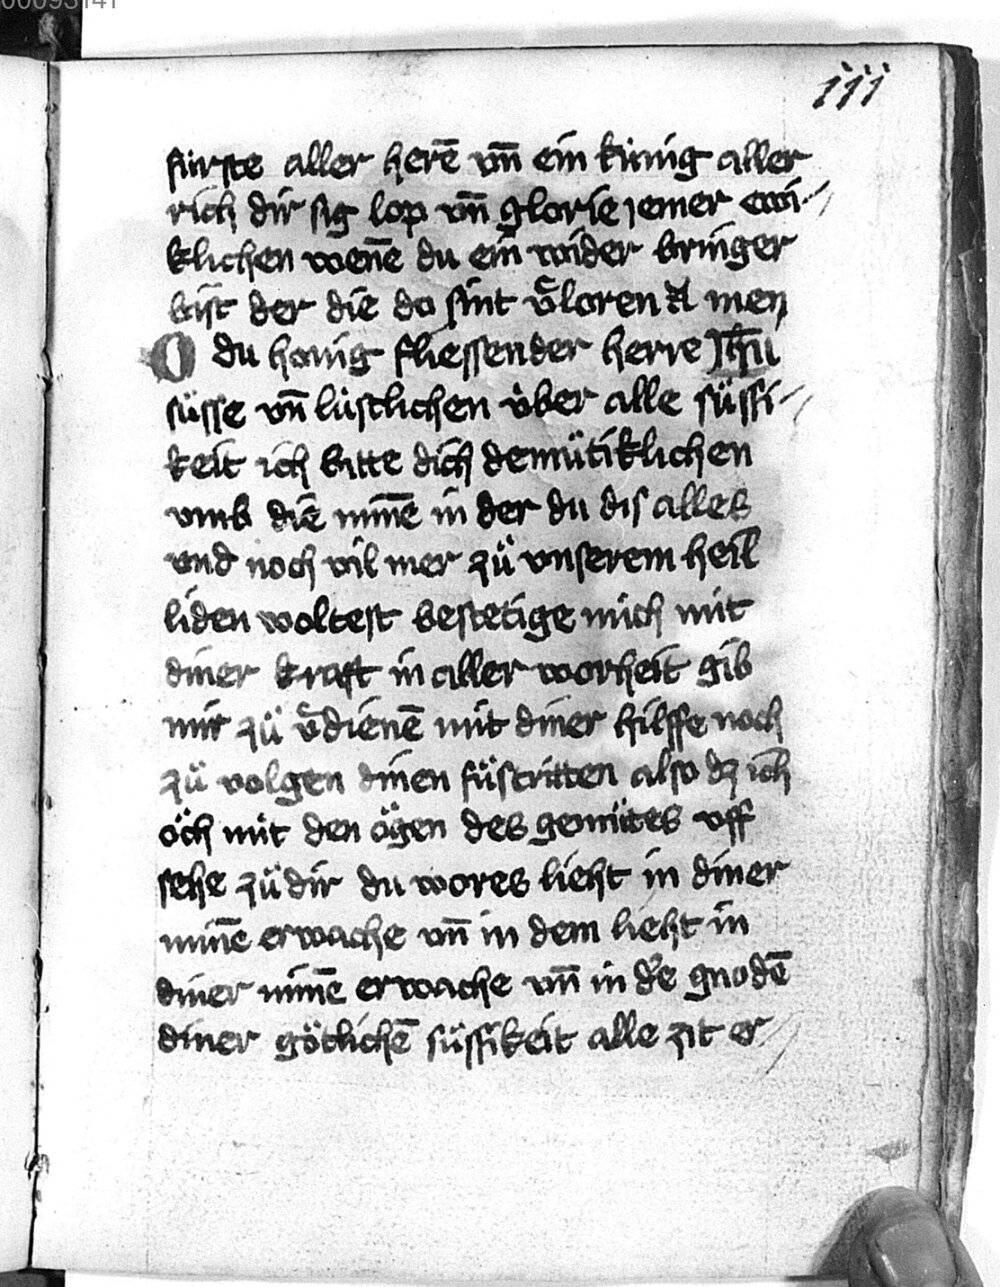 00093141
iii
fürste aller herē vn̄ ein künig aller
rich dir sig lop vn̄ glorie iemer ewi-
klichen wenē du ein wider bringer
bist der die do sint v̓loren A men
O du honig fliessender herre Jhū
süsse vn̄ lüstlichen v̊ber alle süssi-
keit ich bitte dich demütiklichen
vmb die minē in der du dis alles
vnd noch vil mer zů vnserem heil
liden woltest bestetige mich mit
diner kraft in aller worheit gib
mir zů v̓dienē mit diner hilffe noch
zů volgen dinen fůstritten also dz ich
öch mit den ögen des gemütes vff
sehe zů dir du wores lieht in diner
minē erwache vn̄ in dem lieht in
diner minē erwache vn̄ in d̓e gnodē
diner götlichē süssikeit alle zit er